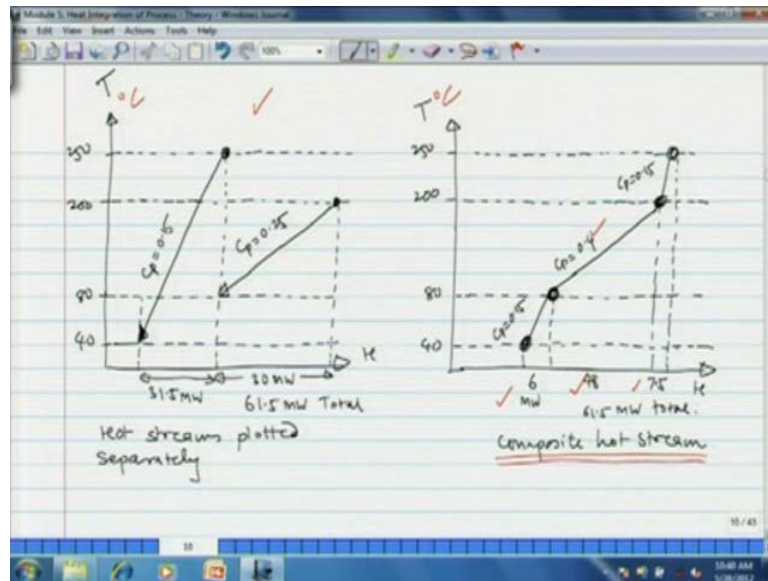 Module 5. Heat Integration of Process - Theory - Windows Journal
File Edit View Insert Actions Tools Help
100%
T °C
T °C
250
200
80
40
Cp=0.15
Cp=0.25
H
31.5MW
30 MW
61.5 MW Total
Hot streams plotted
separately
250
200
80
40
Cp=0.15
Cp=0.4
Cp=0.15
H
6
MW
48
7.5
61.5 MW total.
Composite hot stream
10 / 43
10
10:48 AM